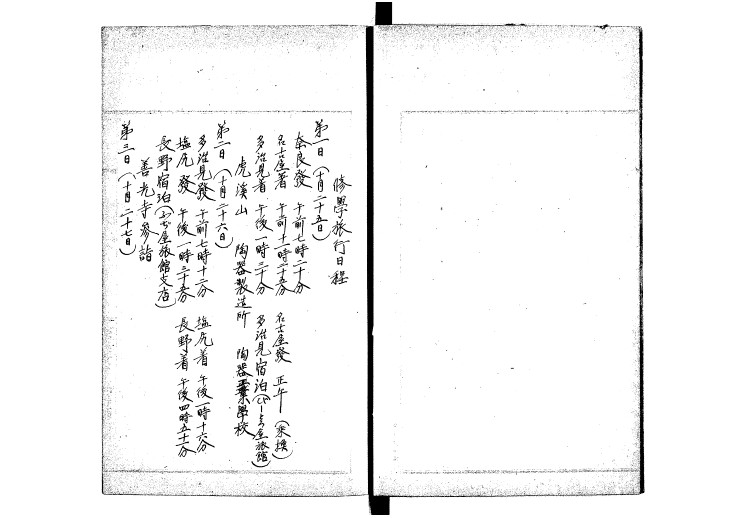 修學旅行日程
第一日(十月二十五日)
奈良發 午前七時二十分
名古屋着 午前十一時二十五分 名古屋發 正午(乘換)
多治見着 午後一時三十分 多治見宿泊
虎溪山 陶器製造所 陶器業學校
第二日(十月二十六日)
多治見發 午前七時十二分 塩尻着 午後一時十六分
塩尻發 午後一時三十五分 長野着 午後四時五十二分
長野宿泊(ふぢ屋旅館支店)
善光寺參詣
第三日(十月二十七日)